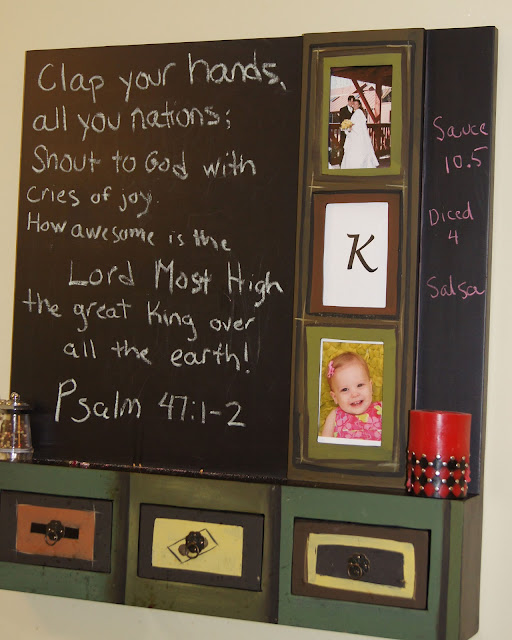 Clap your hands,
all you nations;
Shout to God with
cries of joy.
How awesome is the
Lord Most High
the great King over
all the earth!
Psalm 47:1-2
K
Sauce
10.5
Diced
4
Salsa